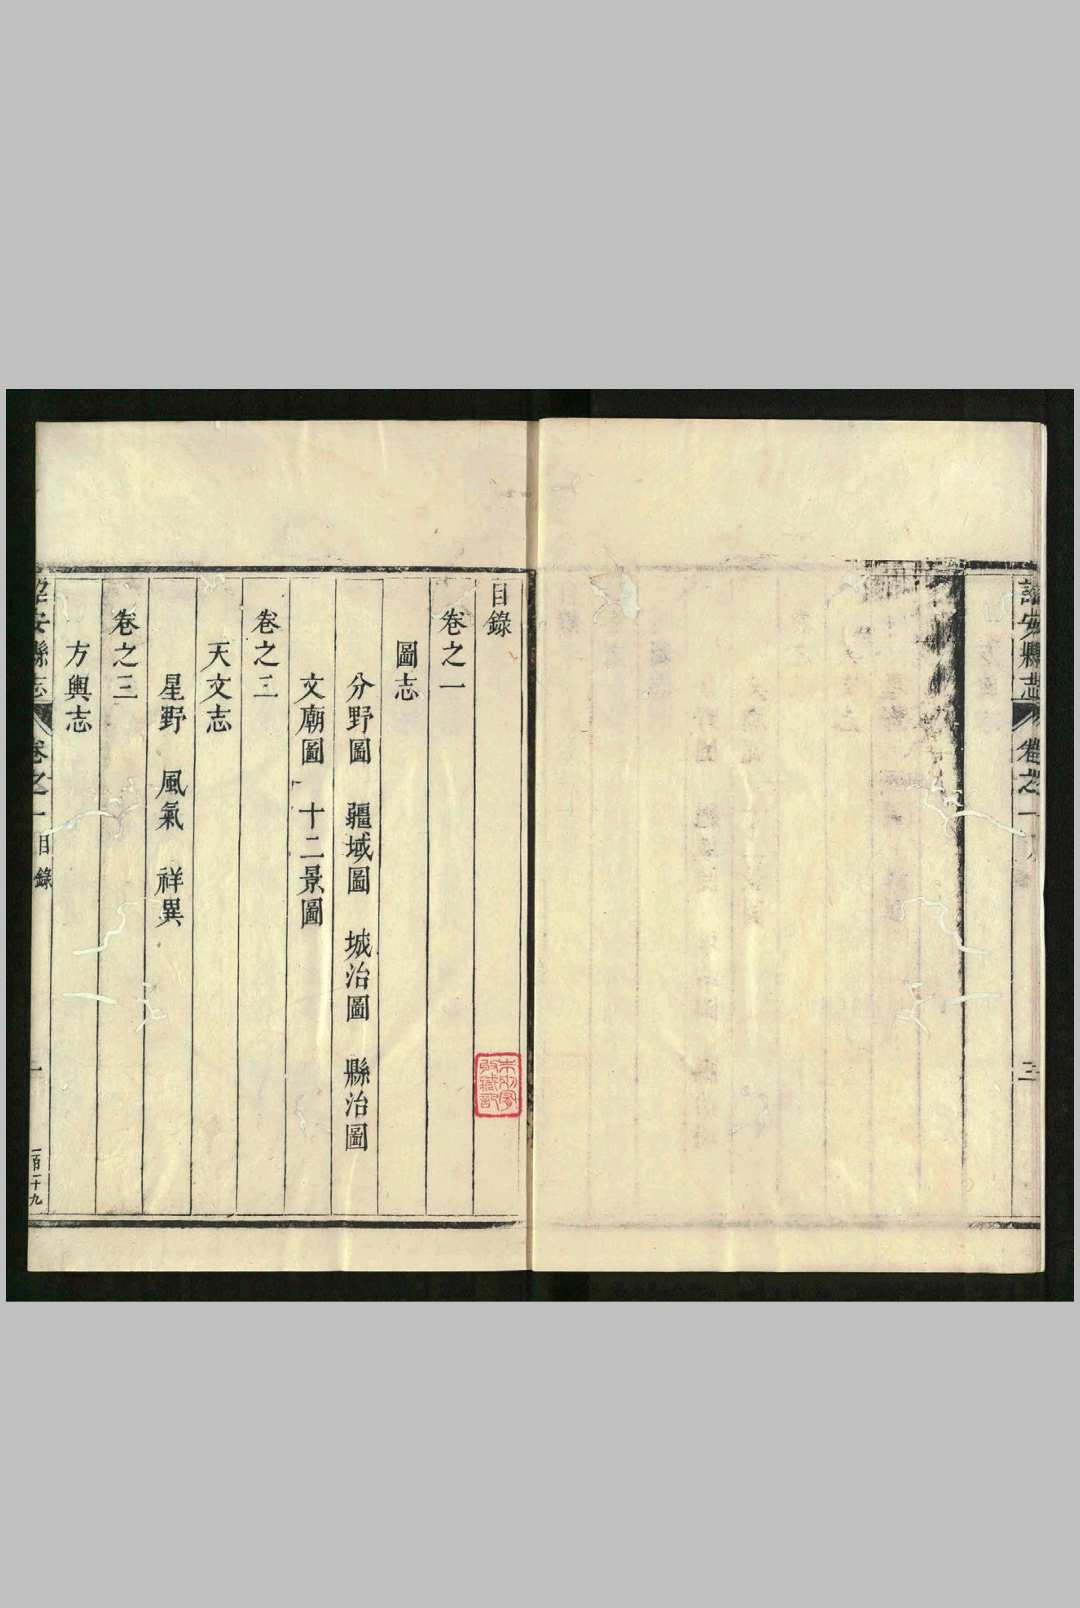 詔安縣志 卷之一
三
目錄
卷之一
圖志
分野圖 疆域圖 城治圖 縣治圖
文廟圖 十二景圖
卷之二
天文志
星野 風氣 祥異
卷之三
方輿志
詔安縣志 卷之一 目錄 一